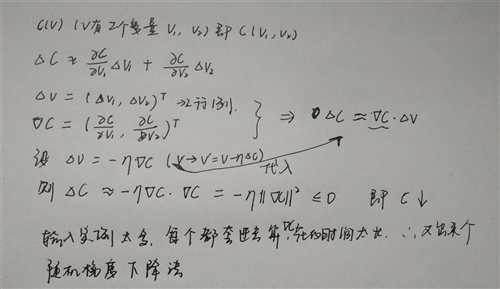 C(V) (V有2个变量 V₁, V₂) 即 C(V₁,V₂)
ΔC ≈ ∂C/∂V₁ ΔV₁ + ∂C/∂V₂ ΔV₂
ΔV = (ΔV₁, ΔV₂)ᵀ →2行1列.
∇C = (∂C/∂V₁, ∂C/∂V₂)ᵀ } ⇒ ΔC ≈ ∇C·ΔV
设 ΔV = -η∇C (V→V'=V-η∇C) 代入
则 ΔC ≈ -η∇C·∇C = -η||∇C||² ≤0 即 C↓
输入实例太多, 每个都要进去算∇C, 花的时间太长. ∴又出来个
随机梯度下降法